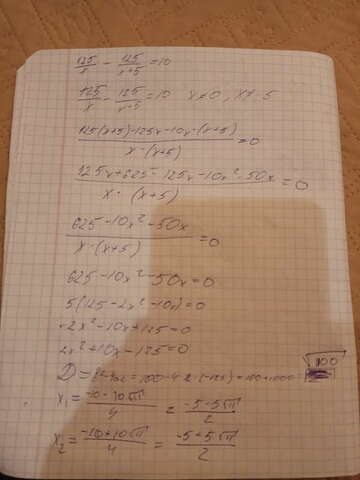 125/x - 125/x+5 = 10
125/x - 125/x+5 = 10 x≠0, x≠-5
125(x+5)-125x-10x·(x+5)/x·(x+5) = 0
125x+625-125x-10x²-50x/x·(x+5) = 0
625-10x²-50x/x·(x+5) = 0
625-10x²-50x=0
5(125-2x²-10x)=0
-2x²-10x+125=0
2x²+10x-125=0
D = =100-4·2·(-125)=100+1000 1100
x₁ = -10-10√11/4 = -5-5√11/2
x₂ = -10+10√11/4 = -5+5√11/2